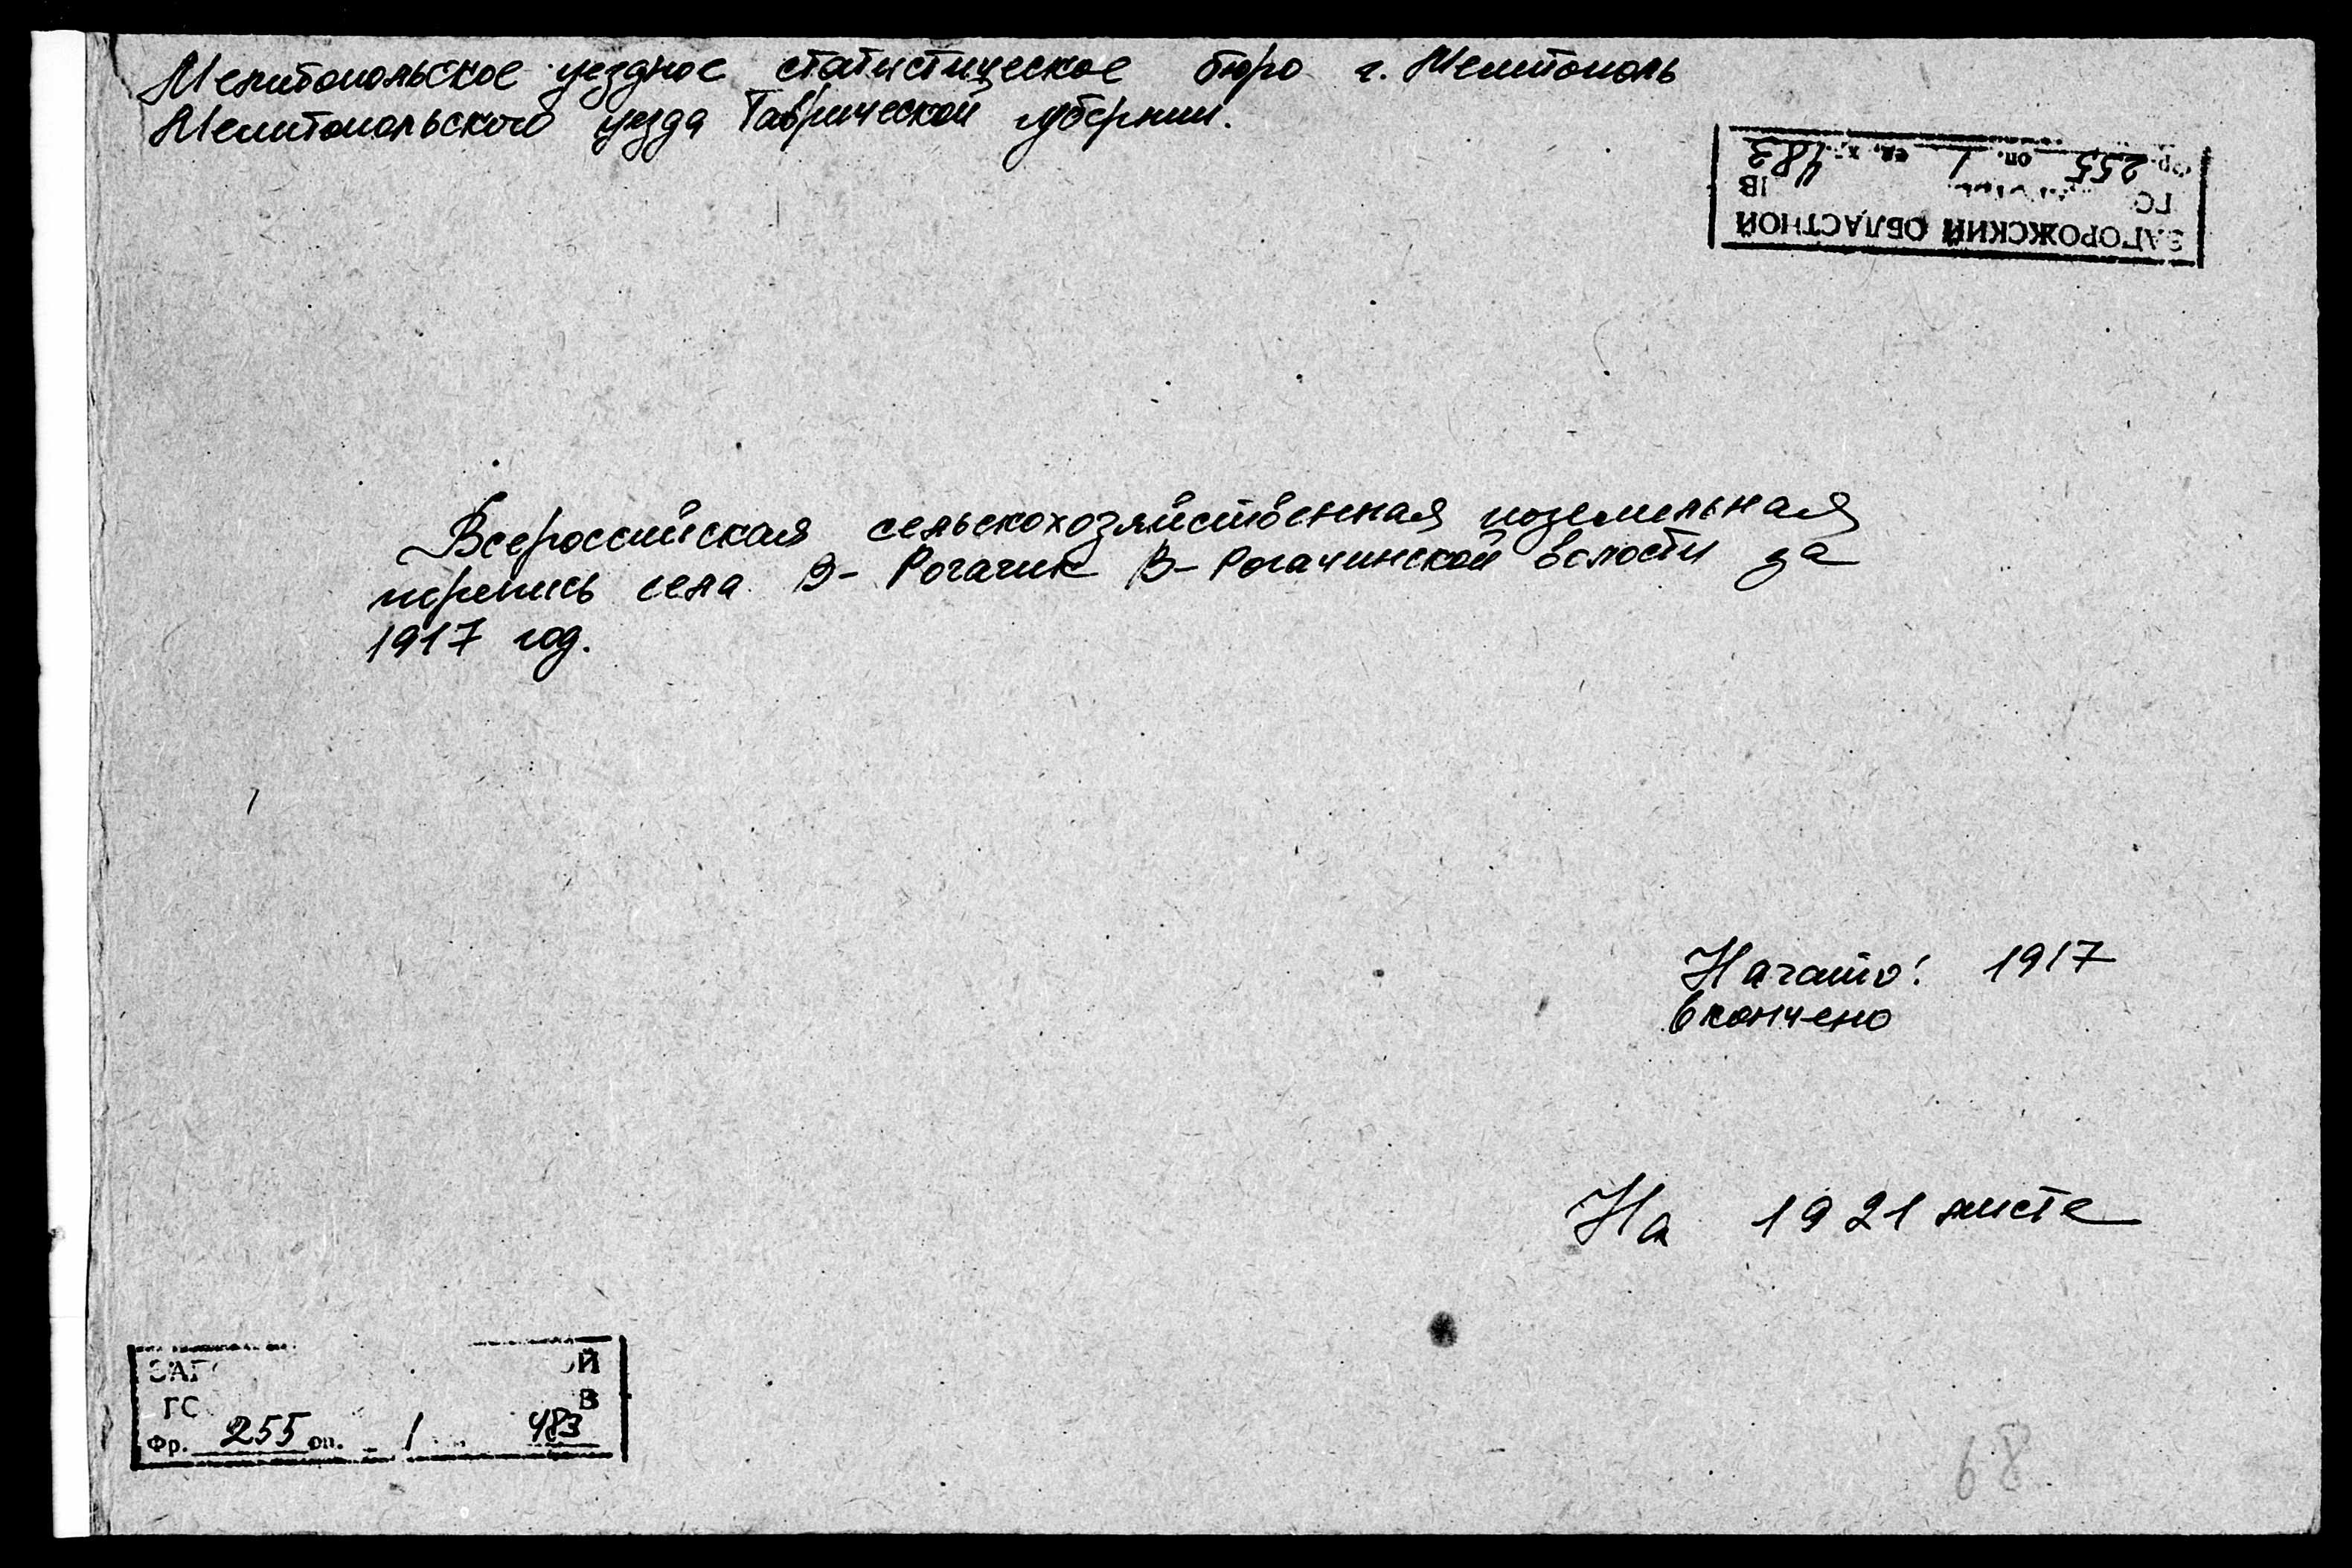 Мелитопольское уездное статистическое бюро г. Мелитополь
Мелитопольского уезда Таврической губернии.
ЗАПОРОЖСКИЙ ОБЛАСТНОЙ
ГС
ІВ
Фр. 255 оп. 1 ед. х. 483
Всероссийская сельскохозяйственная поземельная
перепись села В-Рогачик В-Рогачинской волости за
1917 год.
Начато: 1917
Окончено
На 1921 листе
ЗАП ОЙ
ГС В
Фр. 255 оп. 1 483
68